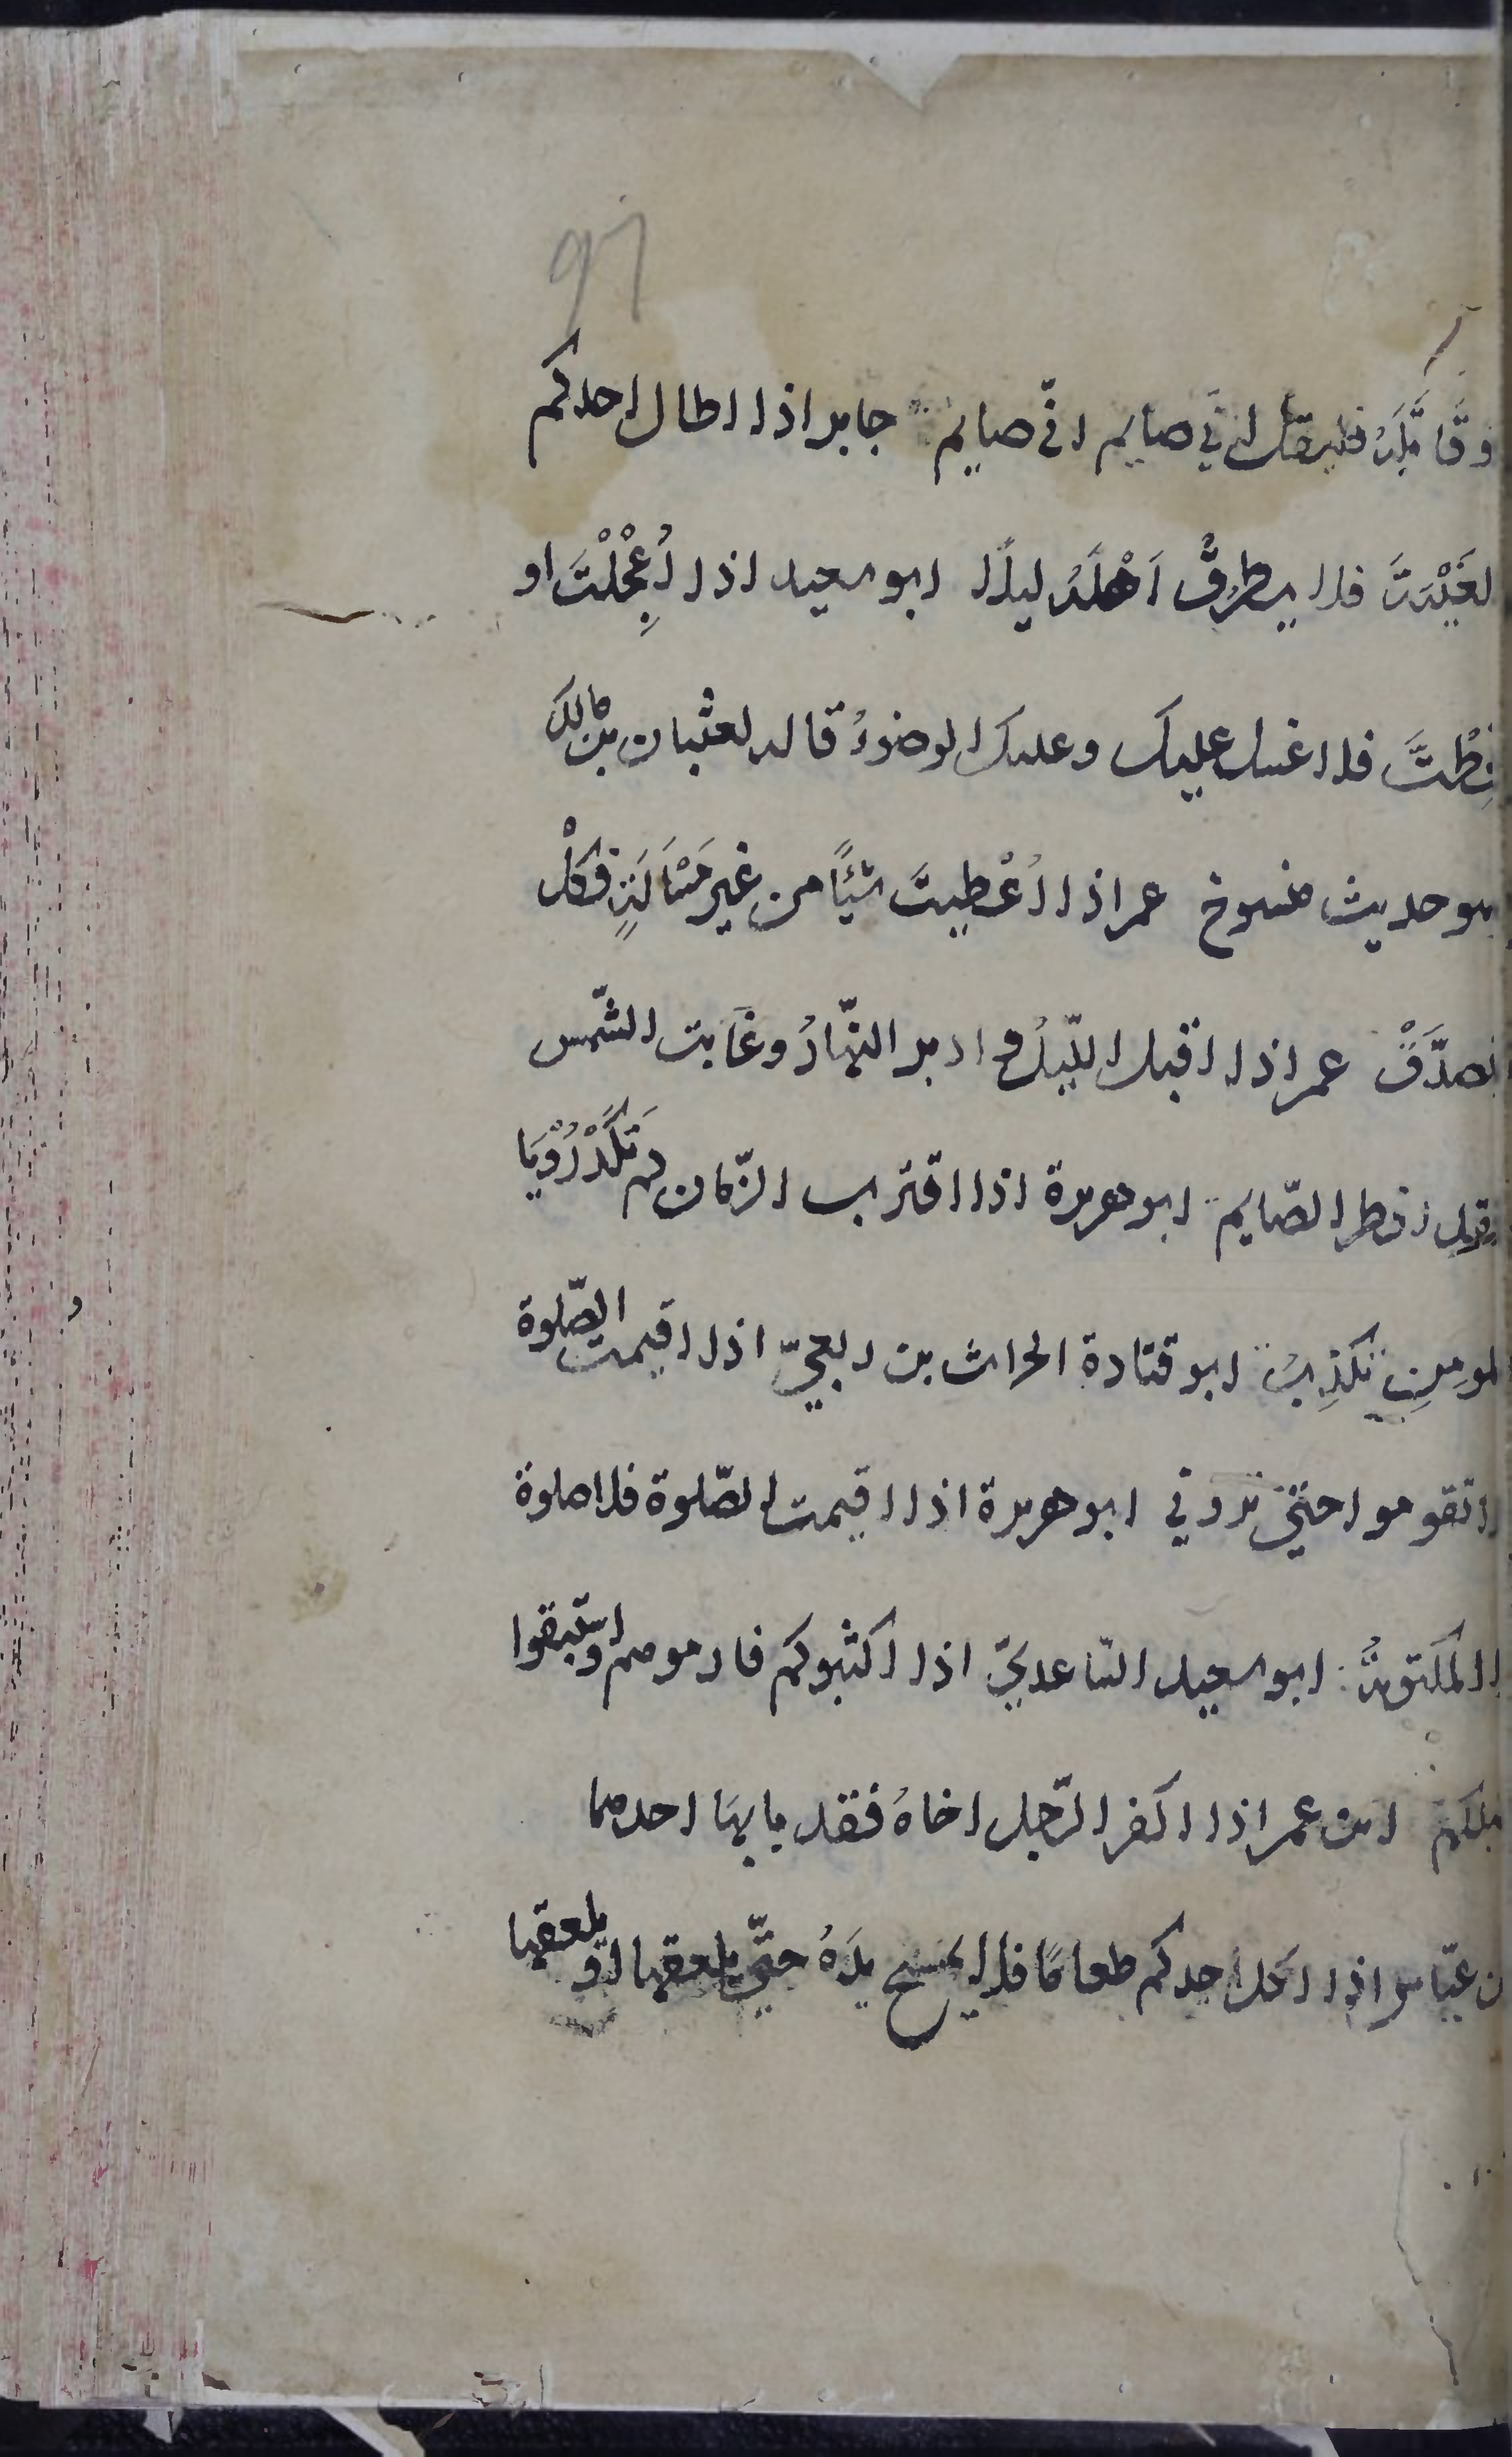 ٩٦
و قَاتَلَهُ فليقل اني صايم اني صايم جابر اذا اطال احدكم
لغَيْبَةَ فلا يطرق اَهْلَهُ ليلًا ابو سعيد اذا اُعْجِلْتَ او
قحِطْتَ فلا غسل عليك وعليك الوضوءُ قاله لعتبان بن مالك
هو حديث منسوخ عمر اذا اُعْطِيتَ شيًا من غير مَسْالَةٍ فكُلْ
تصدَّقْ عمر اذا اقبل اللّيلُ و ادبر النّهارُ وغابت الشّمس
فقد افطر الصّايم ابو هريرة اذا اقترب الزّمان لم تَكَدْ رُؤْيَا
لمومِنِ تكذِبُ ابو قتادة الحراث بن ربعيّ اذا اقيمت الصّلوة
لا تقوموا حتّي تروني ابو هريرة اذا اقيمت الصّلوة فلا صلوة
الا المكتوبةُ ابو سعيد السّاعديّ اذا اكثبوكم فارموهم واستبقوا
نبلكم ابن عمر اذا اكفر الرّجل اخاهُ فقد با بهَا احدهما
بن عبّاس اذا اكل احدكم طعامًا فلا يمسح يدَهُ حتّي يلعقها او يلعقها